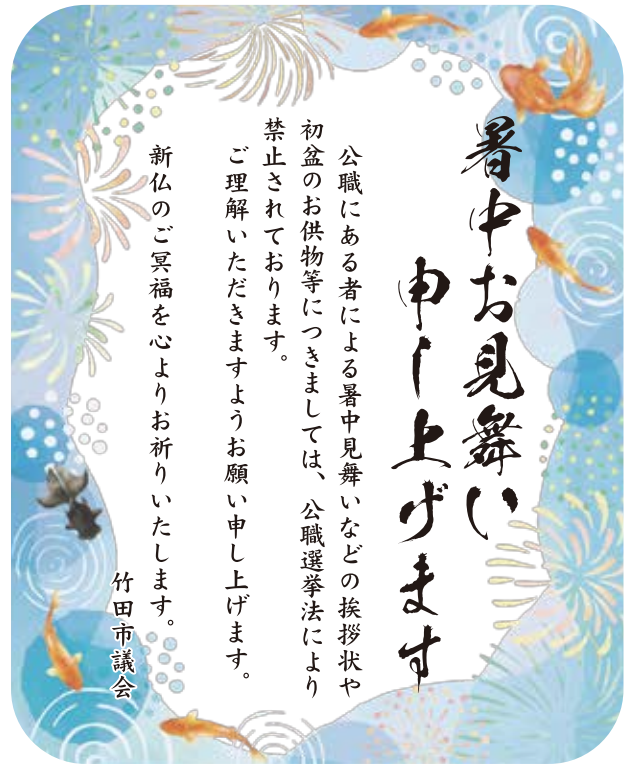 暑中お見舞い
申し上げます
公職にある者による暑中見舞いなどの挨拶状や
初盆のお供物等につきましては、公職選挙法により
禁止されております。
ご理解いただきますようお願い申し上げます。
新仏のご冥福を心よりお祈りいたします。
竹田市議会